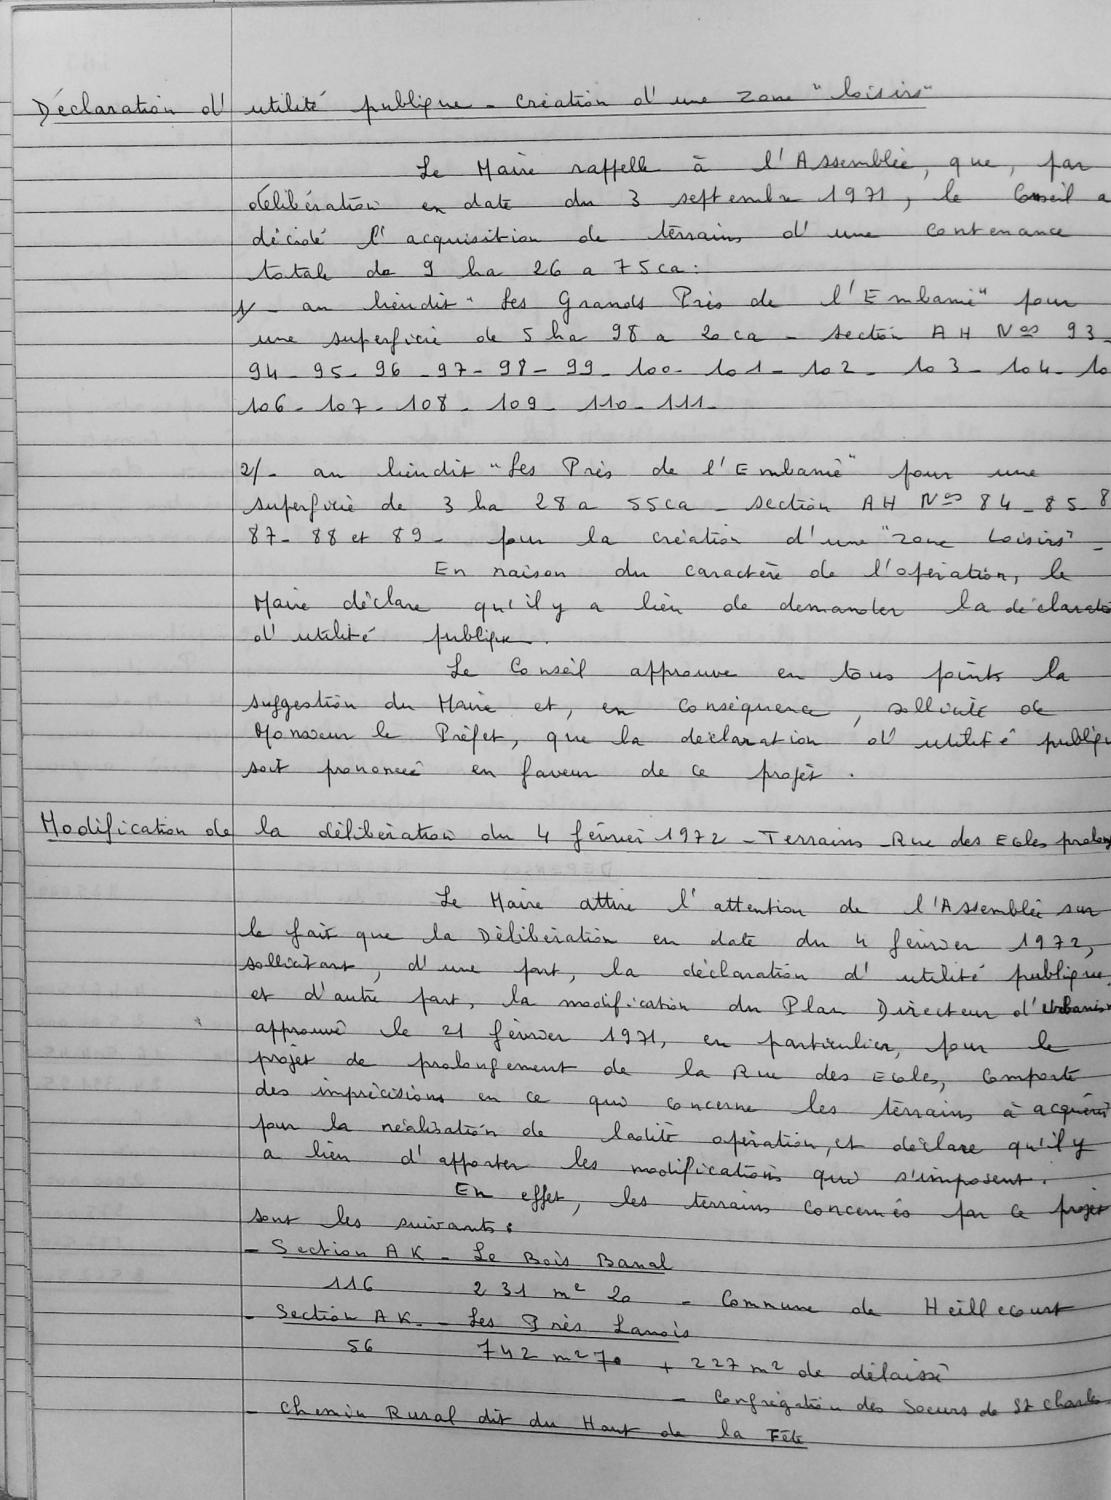 Déclaration d'utilité publique - Création d'une zone "loisirs"
Le Maire rappelle à l'Assemblée, que, par
délibération en date du 3 septembre 1971, le Conseil a
décidé l'acquisition de terrains d'une contenance
totale de 9 ha 26 a 75 ca :
1/- au lieudit "Les Grands Prés de l'Embanie" pour
une superficie de 5 ha 98 a 20 ca - section AH Nos 93 -
94 - 95 - 96 - 97 - 98 - 99 - 100 - 101 - 102 - 103 - 104 - 10
106 - 107 - 108 - 109 - 110 - 111 -
2/- au lieudit "Les Prés de l'Embanie" pour une
superficie de 3 ha 28 a 55 ca - section AH Nos 84 - 85 - 8
87 - 88 et 89 - pour la création d'une "zone loisirs" -
En raison du caractère de l'opération, le
Maire déclare qu'il y a lieu de demander la déclarati
d'utilité publique.
Le Conseil approuve en tous points la
suggestion du Maire et, en conséquence, sollicite de
Monsieur le Préfet, que la déclaration d'utilité publiqu
soit prononcée en faveur de ce projet.
Modification de la délibération du 4 février 1972 - Terrains - Rue des Ecoles prolong
Le Maire attire l'attention de l'Assemblée sur
le fait que la Délibération en date du 4 février 1972,
sollicitant, d'une part, la déclaration d'utilité publique,
et d'autre part, la modification du Plan Directeur d'Urbanis
approuvé le 21 février 1971, en particulier, pour le
projet de prolongement de la Rue des Ecoles, comporte
des imprécisions en ce qui concerne les terrains à acquérir
pour la réalisation de ladite opération, et déclare qu'il y
a lieu d'apporter les modifications qui s'imposent.
En effet, les terrains concernés par ce projet
sont les suivants :
- Section AK - Le Bois Banal
116 231 m² 20 - Commune de Heillecourt
- Section AK - Les Prés Lanois
56 742 m² 70 + 227 m² de délaissé
- Congrégation des Soeurs de St Charles
- Chemin Rural dit du Haut de la Fête